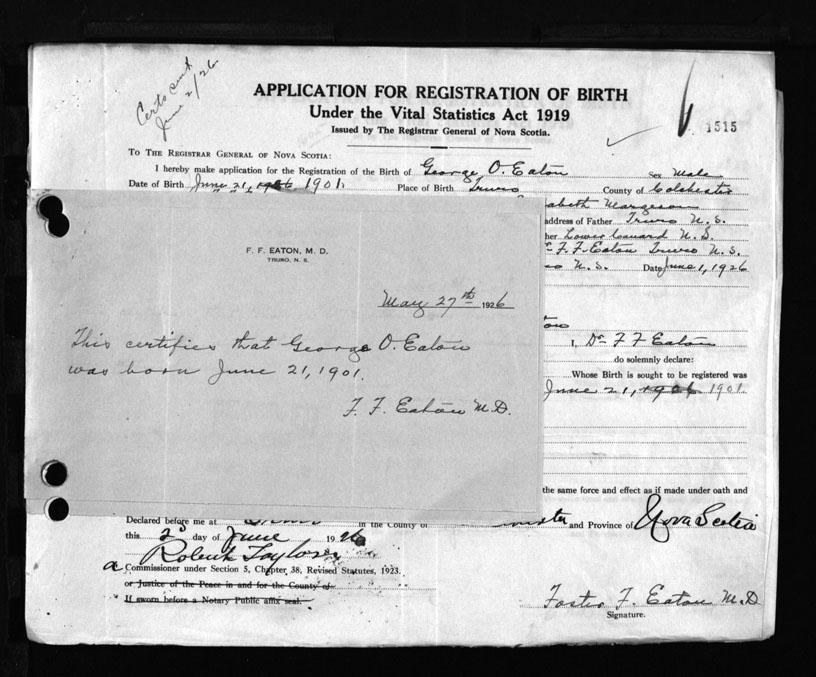 Certs sent
June 2/26
APPLICATION FOR REGISTRATION OF BIRTH
Under the Vital Statistics Act 1919
Issued by The Registrar General of Nova Scotia.
1515
TO THE REGISTRAR GENERAL OF NOVA SCOTIA:
I hereby make application for the Registration of the Birth of George O. Eaton Sex Male
Date of Birth June 21, 1906 1901. Place of Birth Truro County of Colchester
abeth Margeson
address of Father Truro N. S.
her Lower Canard N. S.
F. F. Eaton Truro N. S.
N. S. Date June 1, 1926
F. F. EATON, M. D.
TRURO, N. S.
May 27th 1926
This certifies that George O. Eaton
was born June 21, 1901.
F. F. Eaton M.D.
I, Dr F F Eaton
do solemnly declare:
Whose Birth is sought to be registered was
June 21, 1906 1901
the same force and effect as if made under oath and
Declared before me at in the County of and Province of Nova Scotia
this 2 day of June 1926
Robert Taylor
a Commissioner under Section 5, Chapter 38, Revised Statutes, 1923.
or Justice of the Peace in and for the County of
If sworn before a Notary Public affix seal.
Foster F. Eaton M.D
Signature.